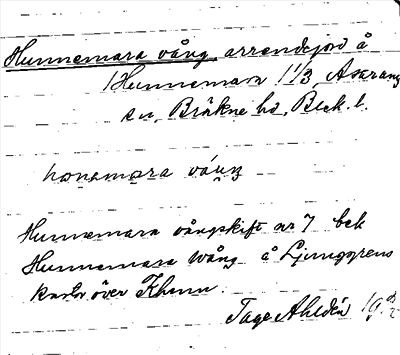 Hunnemara vång, arrendejord å
Hunnemara 1 1/3, Asarums
sn, Bräkne hd, Blek. l.
hønamøra vång
Hunnemara vångskift nr 7 bek
Hunnemara Wång å Ljunggrens
karta över Khmn.
Tage Ahldén 19